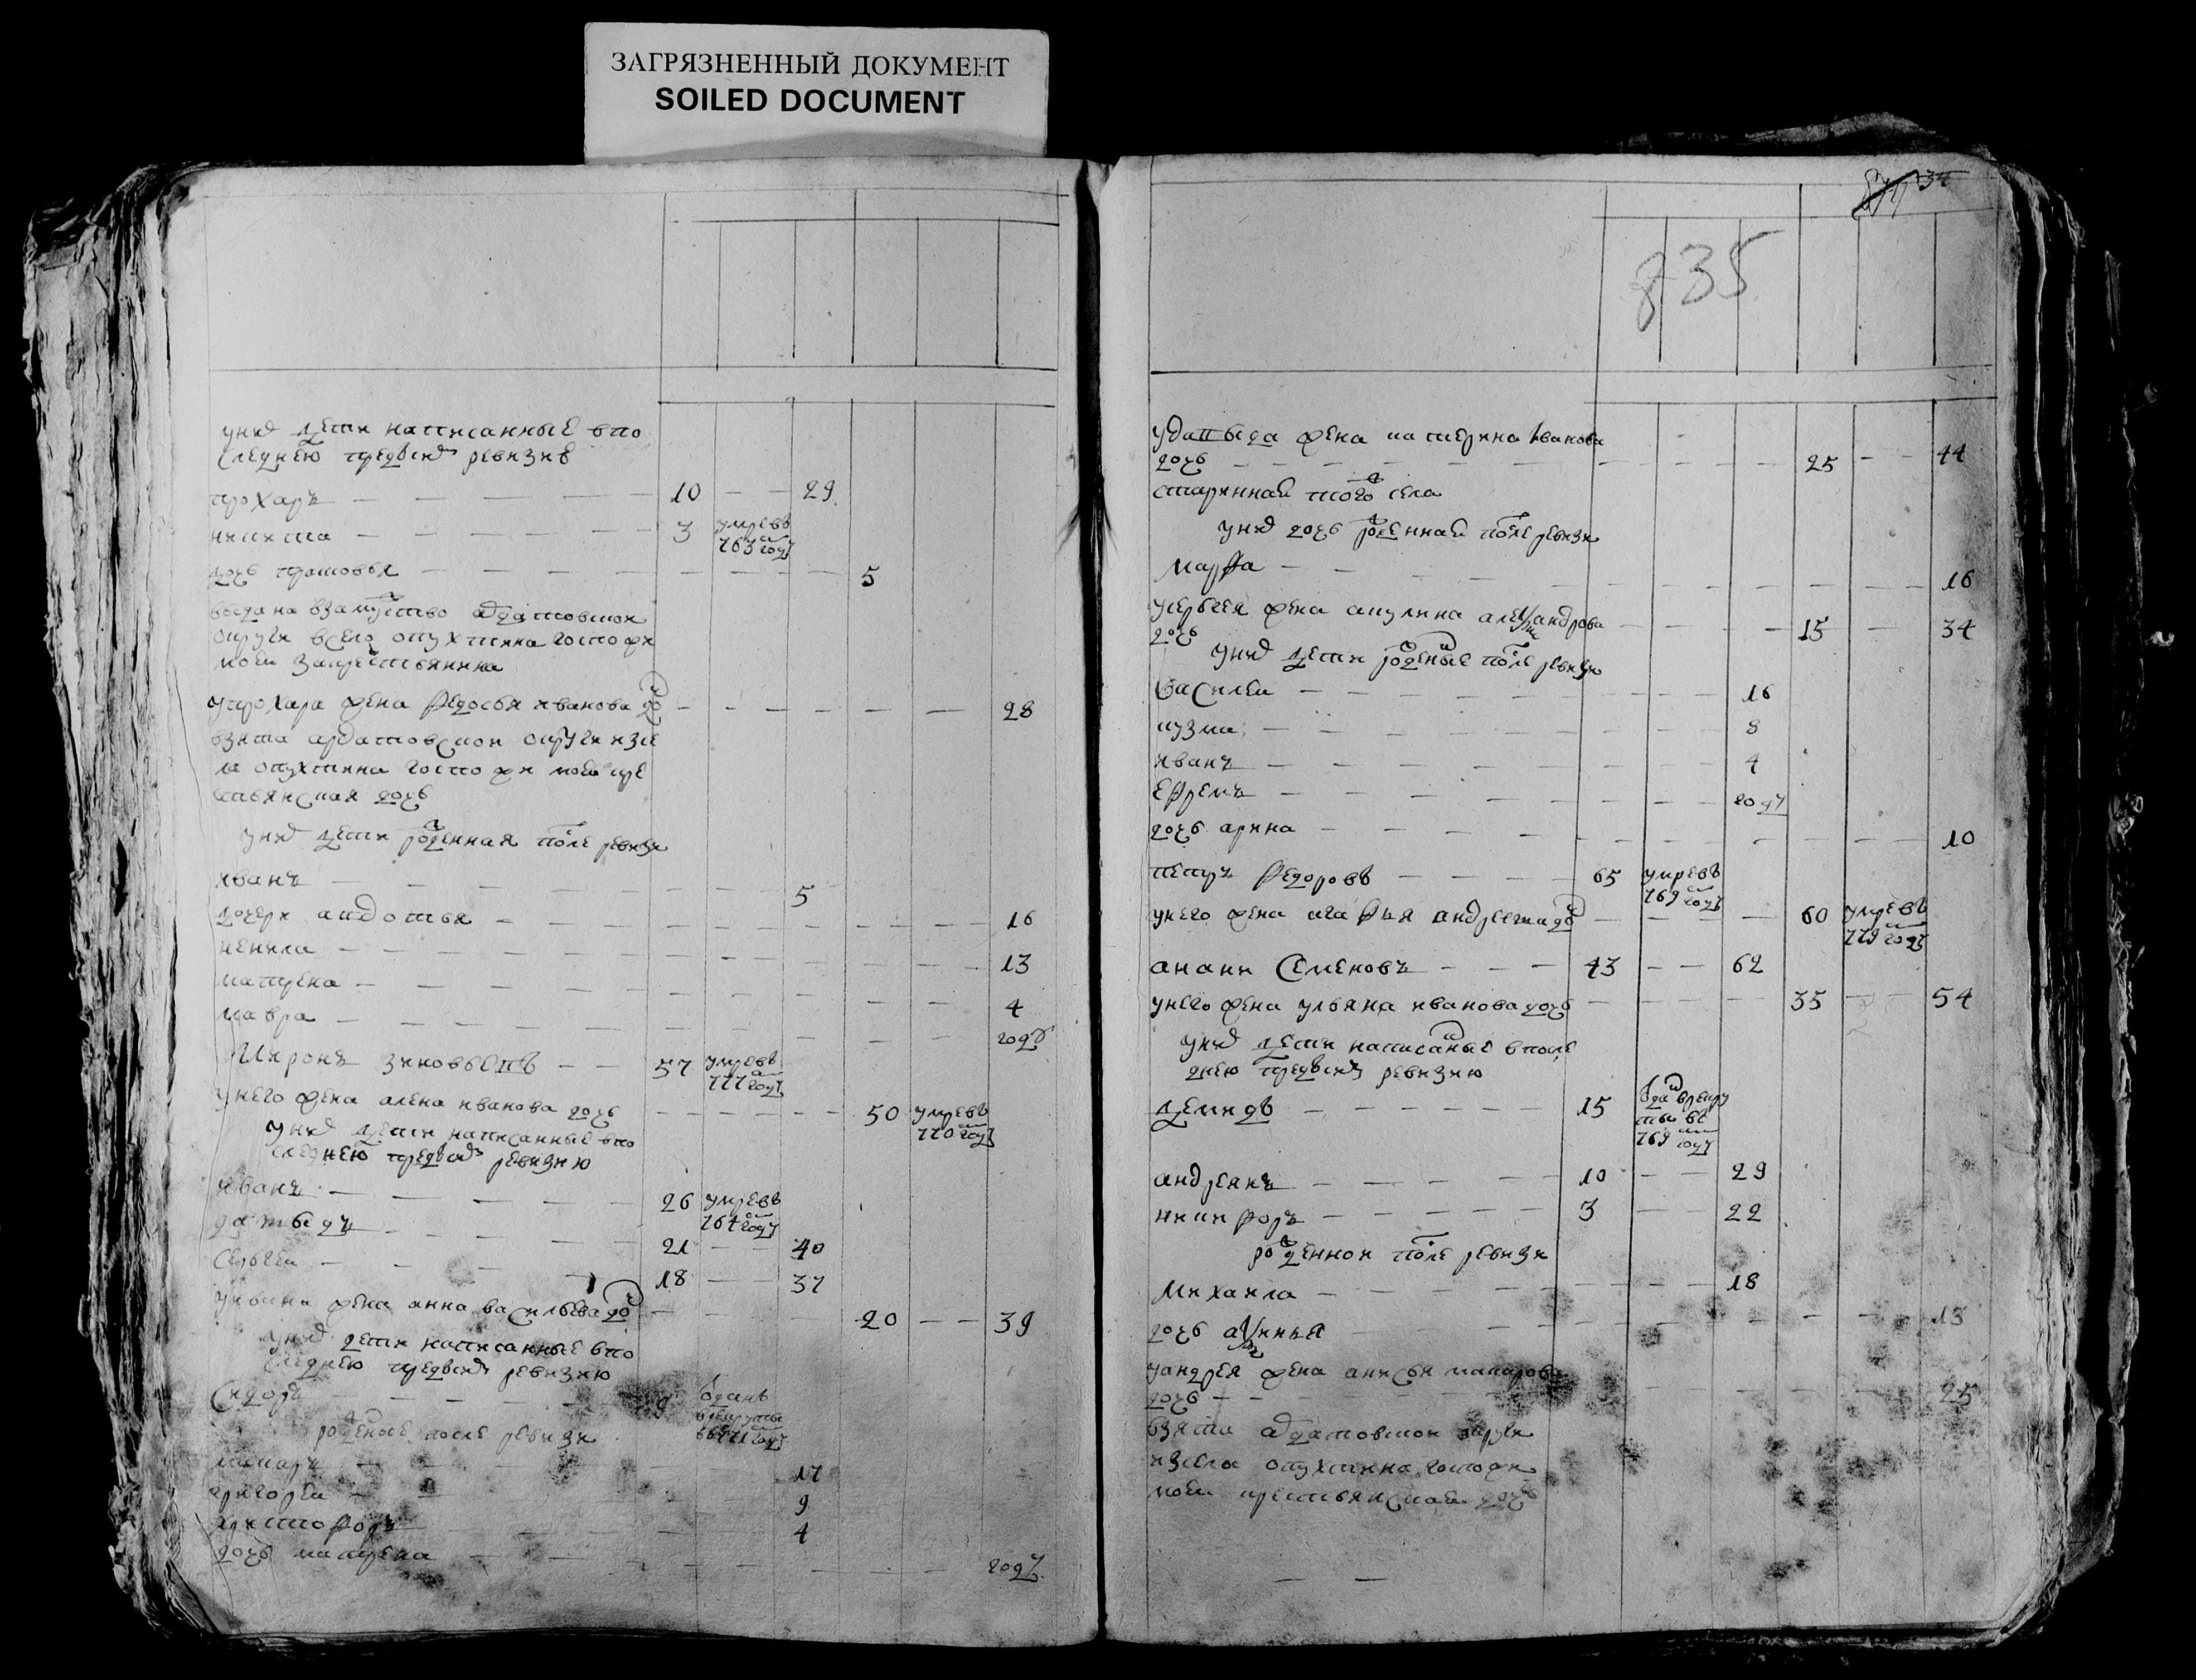 ЗАГРЯЗНЕННЫЙ ДОКУМЕНТ
SOILED DOCUMENT
у них дети написанные в по
следнею пред сим ревизию
прохаръ 10 29
никита 3 умре въ 763 году
дочь прасковья 5
выдана в замуство ардатовской
округи в село опухтина госпожи
моей за крестьянина
у прохара жена федосья иванова до 28
взята ардатовской округи из се
ла опухтина госпожи моей кре
стьянская дочь
у них дети рожденная после ревизи
иванъ 5
дочери авдотья 16
ненила 13
матрена 4
мавра году
миронъ зиновьевъ 57 умре въ 777 году
у него жена алена иванова дочь 50 умре въ 770 году
у них дети написанные в по
следнею пред сим ревизию
иванъ 26 умре въ 764 году
давыдъ 21 40
сергеи 18 37
у ивана жена анна васильева до 20 39
у них дети написанные в по
следнею пред сим ревизию
сидоръ отданъ в рекруты въ 771 году
рожденые после ревизи
макаръ 17
григореи 9
христофоръ 4
дочь матрена году
34
835
у давыда жена катерина иванова
дочь 25 44
старинная того села
у них дочь рожденная после ревизи
марфа 16
у сергея жена акулина александрова
дочь 15 34
у них дети рожденые после ревизи
василеи 16
кузма 8
иванъ 4
ефремъ году
дочь арина 10
петръ федоровъ 65 умре въ 769 году
у него жена агафья андреева до 60 умре въ 779 году
анани семеновъ 43 62
у него жена ульяна иванова дочь 35 54
у них дети написаные в после
днею пред сим ревизию
демидъ 15 отдан в рекруты въ 769 году
андреянъ 10 29
никифоръ 3 22
рожденнои после ревизи
михаила 18
дочь аксинья 13
у андрея жена анисья макарова
дочь 25
взята ардатовской округи
из села опухтина госпожи
моей крестьянская дочь